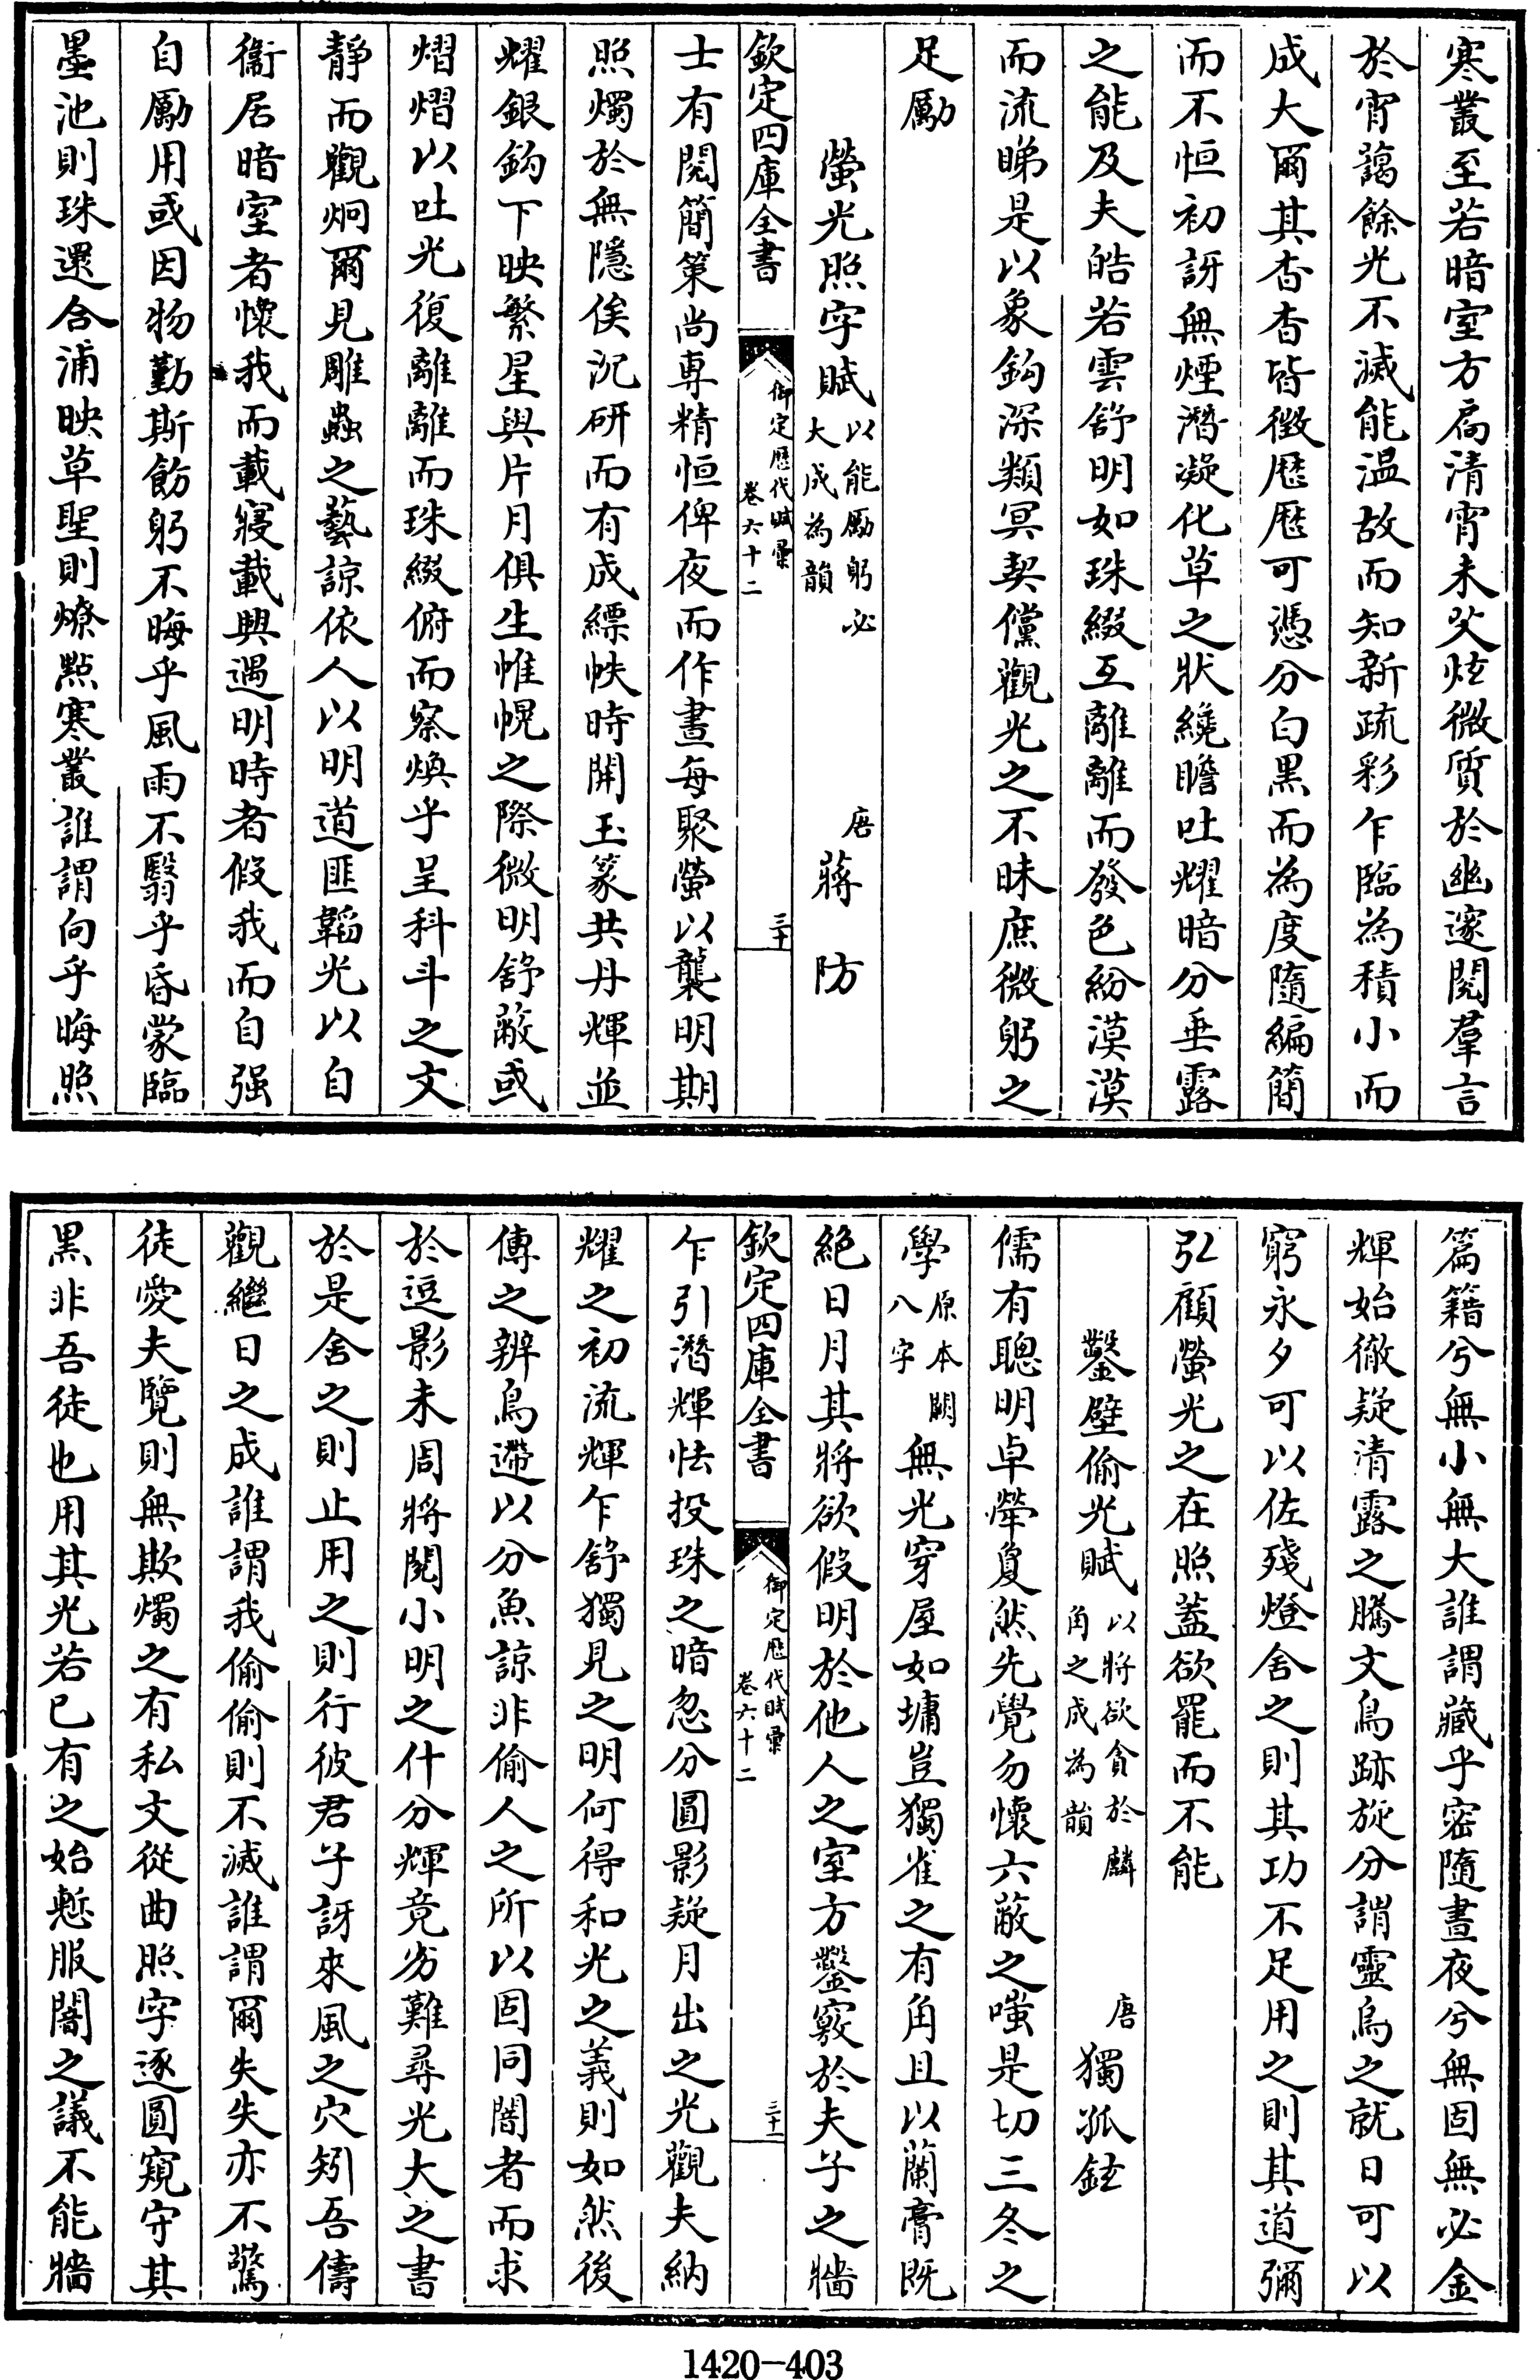 寒叢至若暗室方扃清宵未艾炫微質於幽邃閱羣言
於宵藹餘光不滅能温故而知新疏彩乍臨為積小而
成大爾其杳杳皆徴歴歴可憑分白黒而為度隨編簡
而不恒初訝無煙潛凝化草之狀繞瞻吐耀暗分垂露
之能及夫皓若雲舒明如珠綴互離離而發色紛漠漠
而流睇是以象鈎深類冥契儻觀光之不昧庶微躬之
足勵
螢光照字賦以能勵躬必大成為韻　唐蔣防
欽定四庫全書　御定歴代賦彙卷六十二　三十
士有閱簡策尚専精恒俾夜而作晝每聚螢以襲明期
照燭於無隱俟沉研而有成縹帙時開玉篆共丹輝並
耀銀鈎下映繁星與片月俱生惟幌之際微明舒蔽或
熠熠以吐光復離離而珠綴俯而察煥乎呈科斗之文
靜而觀炯爾見雕蟲之藝諒依人以明道匪韜光以自
衞居暗室者懷我而載寢載興遇明時者假我而自强
自勵用或因物勤斯飭躬不晦乎風雨不翳乎昏蒙臨
墨池則珠還合浦映草聖則燎㸃寒叢誰謂向乎晦照
篇籍兮無小無大誰謂藏乎密隨晝夜兮無固無必金
輝始徹疑清露之騰文鳥跡旋分謂靈烏之就日可以
窮永夕可以佐殘燈舍之則其功不足用之則其道彌
弘顧螢光之在照蓋欲罷而不能
鑿壁偷光賦以將欲貪於麟角之成為韻　唐獨孤鉉
儒有聰明卓犖夐然先覺勿懷六蔽之嗤是切三冬之
學原本闕八字無光穿屋如墉豈獨雀之有角且以蘭膏既
絶日月其將欲假明於他人之室方鑿竅於夫子之牆
欽定四庫全書　御定歴代賦彙卷六十二　三十一
乍引潛輝怯投珠之暗忽分圓影疑月出之光觀夫納
耀之初流輝乍舒獨見之明何得和光之義則如然後
傅之辨鳥遰以分魚諒非偷人之所以固同闇者而求
於逗影未周將閱小明之什分輝竟劣難尋光大之書
於是舍之則止用之則行彼君子訝來風之穴矧吾儔
觀繼日之成誰謂我偷偷則不滅誰謂爾失失亦不驚
徒愛夫覽則無欺燭之有私文從曲照字逐圓窺守其
黒非吾徒也用其光若已有之始慙服闇之議不能牆
1420-403